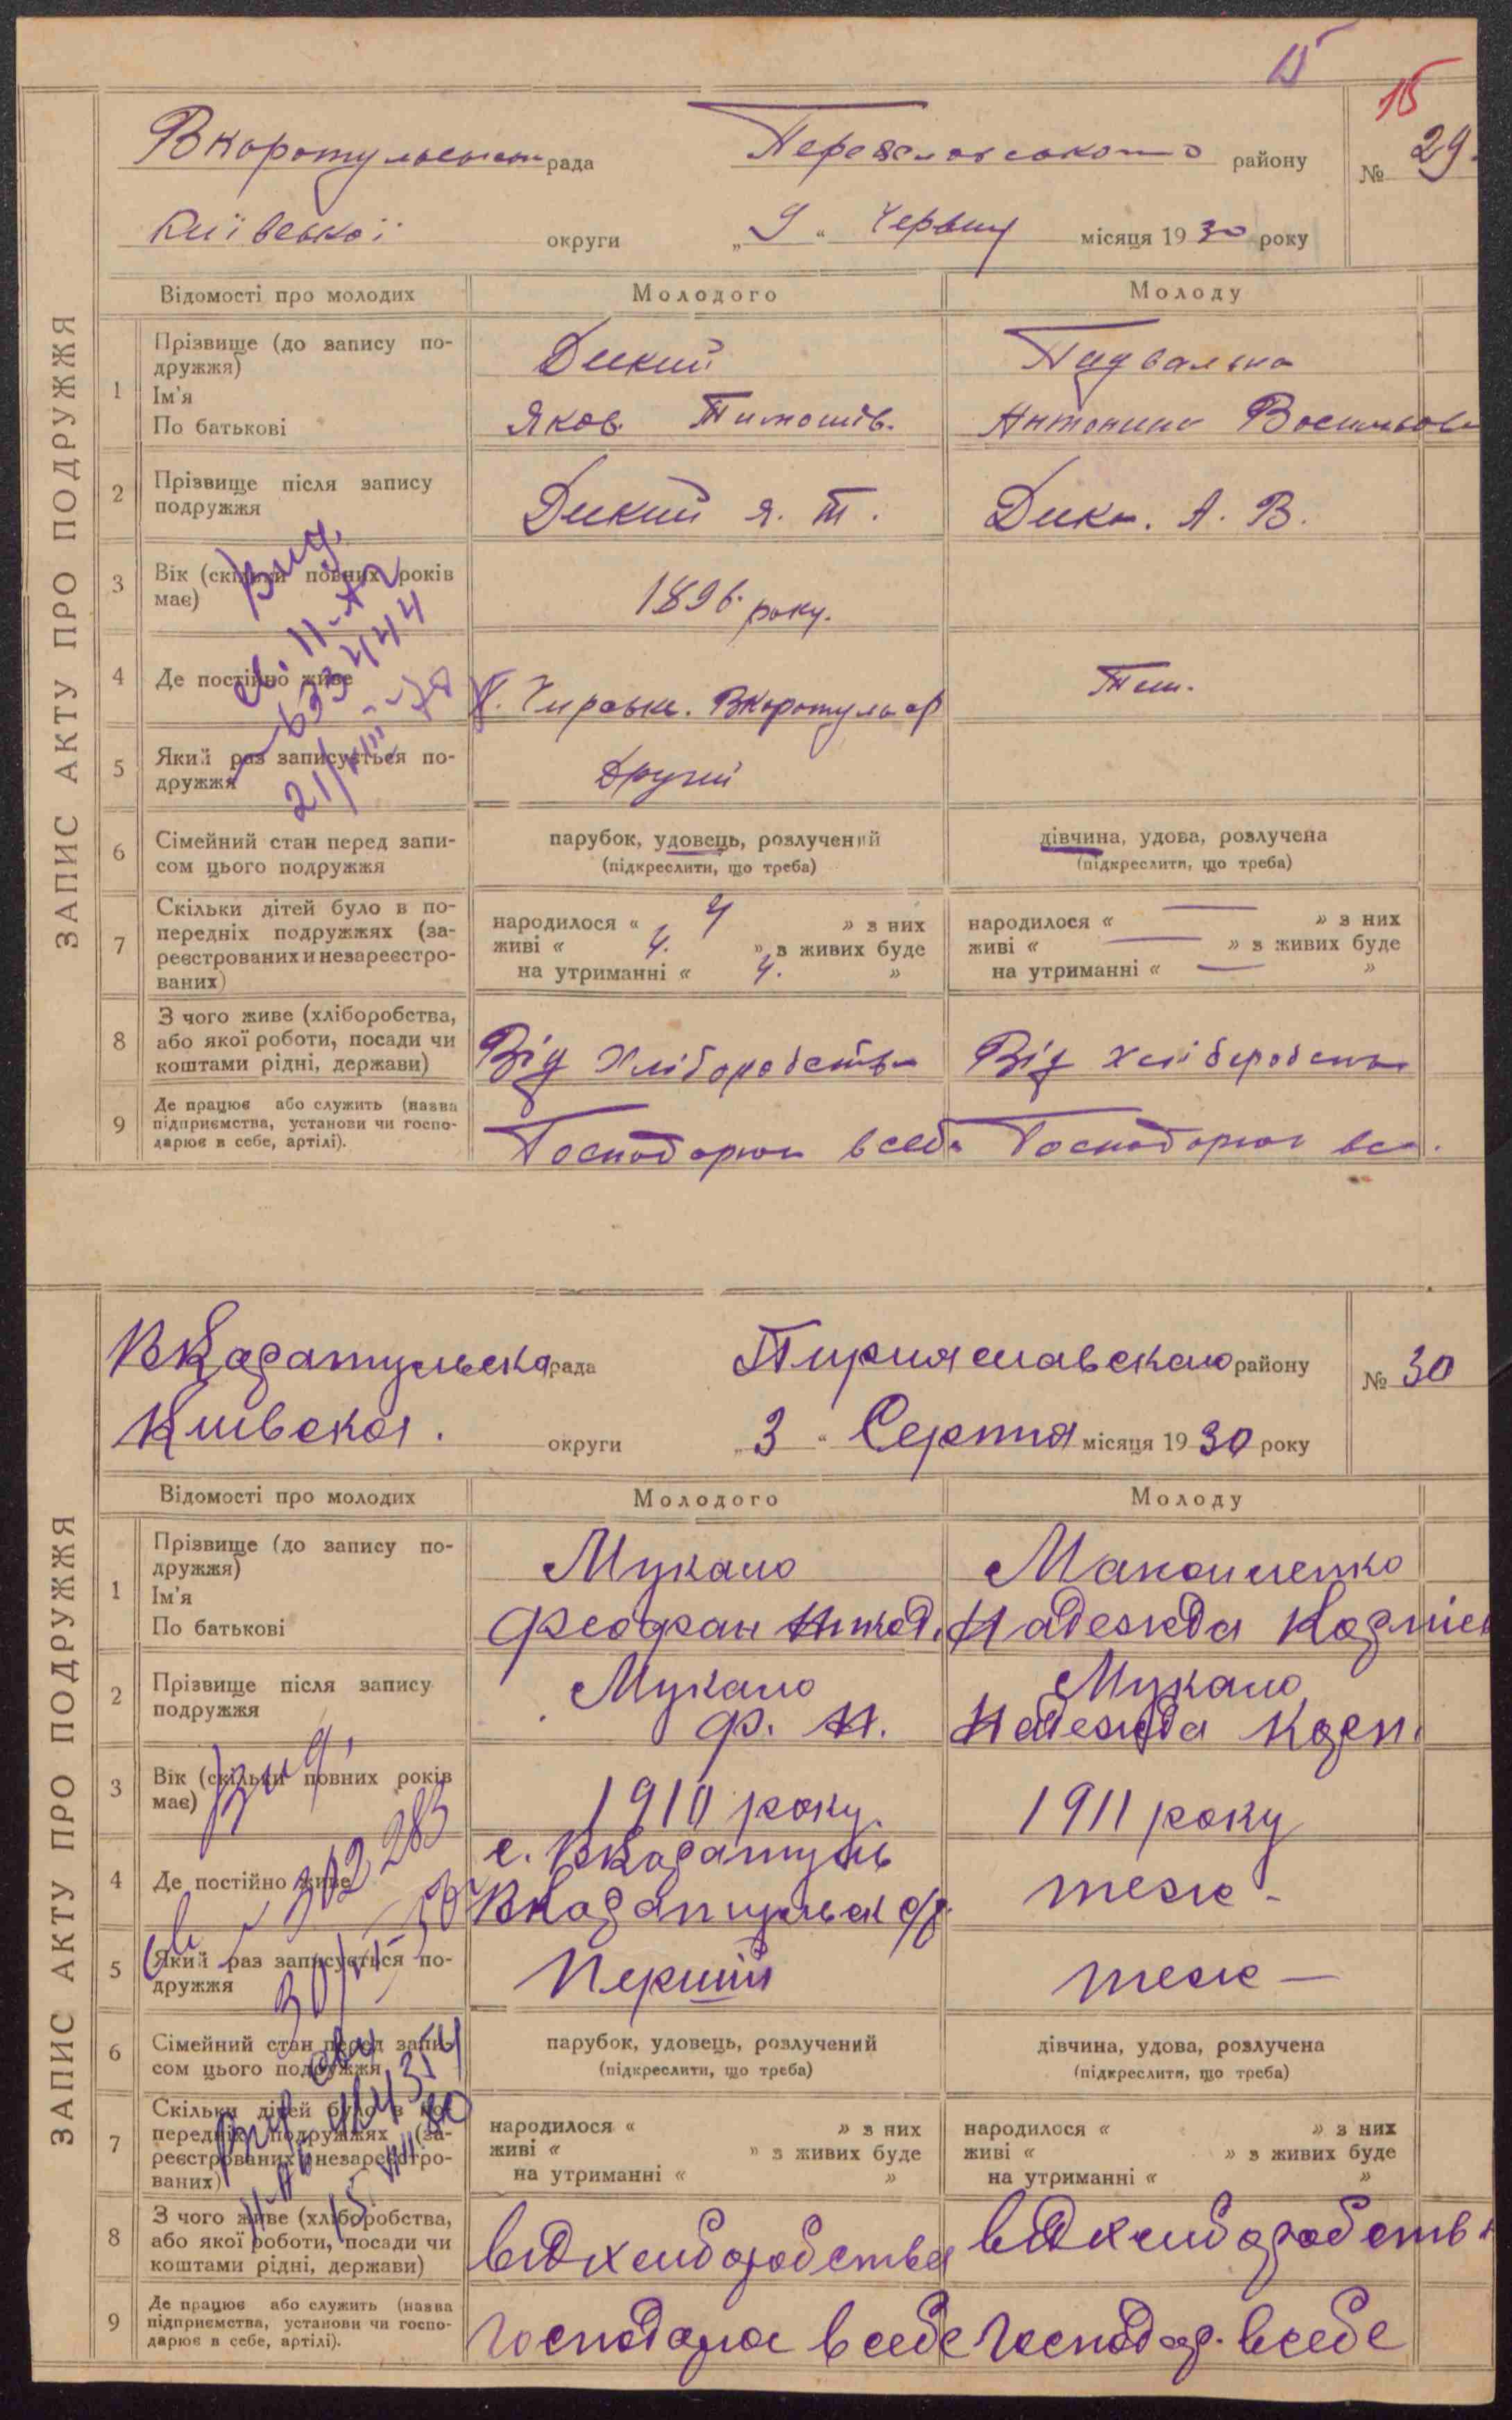 15
15
Вкоротульська рада Переяславського району № 29.
Київської округи „ 9 “ Червня місяця 1930 року
ЗАПИС АКТУ ПРО ПОДРУЖЖЯ
Відомості про молодих Молодого Молоду
1 Прізвище (до запису по-
дружжя) Дикий Підвальна
Ім'я
По батькові Яков Тимошів. Антонина Васильов
2 Прізвище після запису
подружжя Дикий Я. Т. Дика. А. В.
3 Вік (скільки повних років
має) 1896 року.
4 Де постійно живе Х. Чирськ. Вкоротульс/р Теж.
5 Який раз записується по-
дружжя Другий
6 Сімейний стан перед запи-
сом цього подружжя
парубок, удовець, розлучений
(підкреслити, що треба)
дівчина, удова, розлучена
(підкреслити, що треба)
7 Скільки дітей було в по-
передніх подружжях (за-
реєстрованих и незареєстро-
ваних)
народилося « 4 » з них
живі « 4. » з живих буде
на утриманні « 4. »
народилося « — » з них
живі « — » з живих буде
на утриманні « — »
8 З чого живе (хліборобства,
або якої роботи, посади чи
коштами рідні, держави)
Від Хліборобства Від хліборобства
9 Де працює або служить (назва
підприємства, установи чи госпо-
дарює в себе, артілі).
Господорює в себе Господорює в се.
Вид.
св. II-АГ
693444
21/VIII-78
ВКаратульска рада Пирияславскаго району № 30
Киівскоі. округи „ 3 “ Серпня місяця 1930 року
ЗАПИС АКТУ ПРО ПОДРУЖЖЯ
Відомості про молодих Молодого Молоду
1 Прізвище (до запису по-
дружжя) Мукало
Ім'я
По батькові Феофан Надежда
2 Прізвище після запису
подружжя Мукало Мукало
Ф. Н. Надежда Корн.
3 Вік (скільки повних років
має) 1910 року 1911 року
4 Де постійно живе с. ВКаратуль
Вкаратульск с/р. теж -
5 Який раз записується по-
дружжя Перший теж —
6 Сімейний стан перед запи-
сом цього подружжя
парубок, удовець, розлучений
(підкреслити, що треба)
дівчина, удова, розлучена
(підкреслити, що треба)
7 Скільки дітей було в по-
передніх подружжях (за-
реєстрованих и незареєстро-
ваних)
народилося « » з них
живі « » з живих буде
на утриманні « »
народилося « » з них
живі « » з живих буде
на утриманні « »
8 З чого живе (хліборобства,
або якої роботи, посади чи
коштами рідні, держави)
від хлиборобства від хлиборобств
9 Де працює або служить (назва
підприємства, установи чи госпо-
дарює в себе, артілі).
Господарює в себе Господар. в себе
Вид.
302283